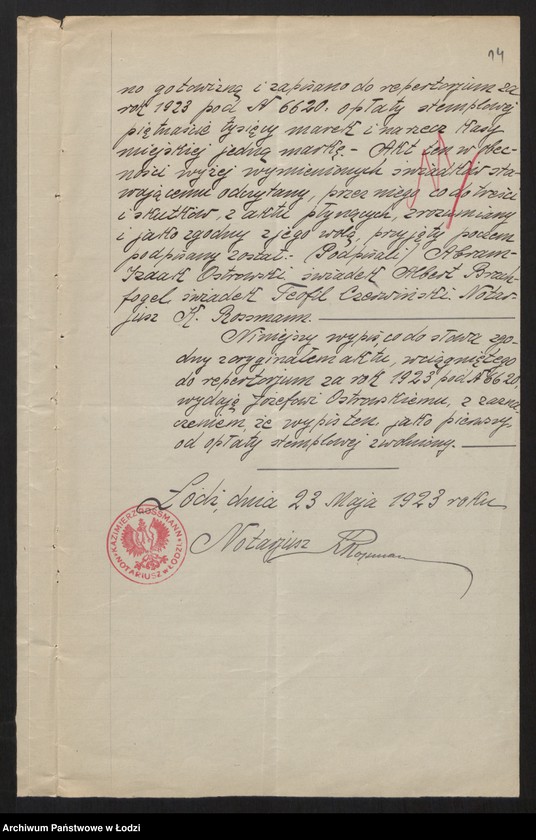 14
no gotowizną i zapisano do repertorjum za
rok 1923 pod № 6620. opłaty stemplowej
piętnaście tysięcy marek i na rzecz kasy
miejskiej jedną markę. - Akt ten w obec-
ności wyżej wymienionych świadków sta-
wającemu odczytany, przez niego co do treści
i skutków, z aktu płynących, zrozumiany
i jako zgodny z jego wolą, przyjęty poczem
podpisany został. (Podpisali) Abram-
Icaak Ostrowski świadek Albert Brach-
fogel świadek Teofil Czerwiński Notar-
jusz K. Rossmann.
Niniejszy wypis, co do słowa zgo-
dny z oryginałem aktu, wciągniętego
do repertorjum za rok 1923 pod № 6620,
wydają Józefowi Ostrowskiemu, z zazna-
czeniem, że wypis ten, jako pierwszy,
od opłaty stemplowej zwolniony.
Łódź, dnia 23 Maja 1923 roku
Notarjusz KRossman
KAZIMIERZ ROSSMANN
NOTARIUSZ w ŁODZI
Archiwum Państwowe w Łodzi